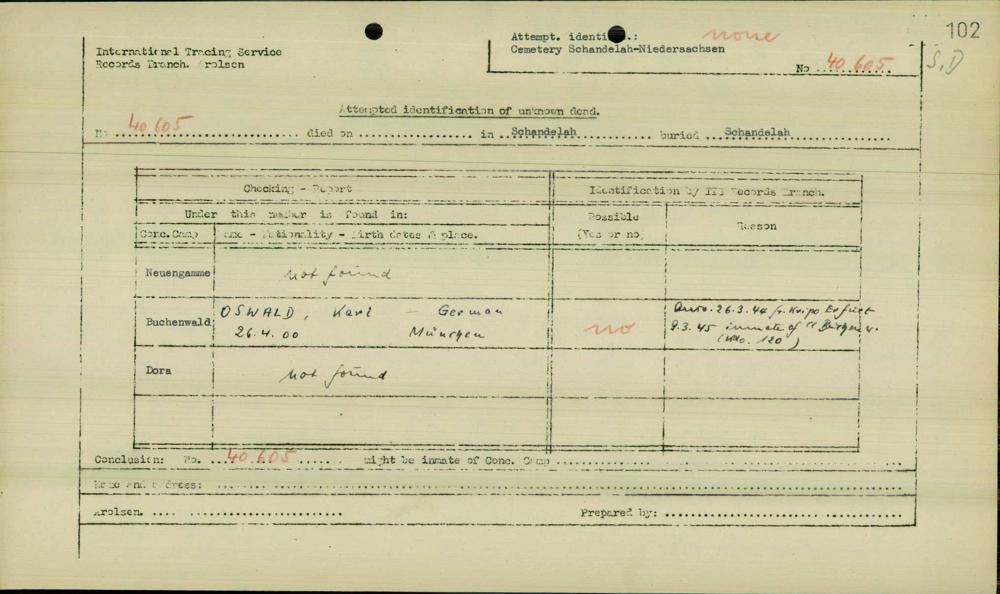 102
S.D
International Tracing Service
Records Branch. Arolsen
Attempt. identi : none
Cemetery Schandelah-Niedersachsen
No 40 605
Attempted identification of unknown dead.
No 40 605 died on in Schandelah buried Schandelah
Checking - Report
Identification by ITS Records Branch.
Under this number is found in:
Possible
(Yes or no)
Reason
Conc. Camp
Name - Nationality - Birth dates & place.
Neuengamme not found
Buchenwald OSWALD, Karl - German
26.4.00 München
no
26.3.44 fr. Kripo Erfurt
9.3.45 inmate of
(No. 120)
Dora not found
Conclusion: No. 40.605 might be inmate of Conc. Camp
Name and address:
Arolsen. Prepared by: